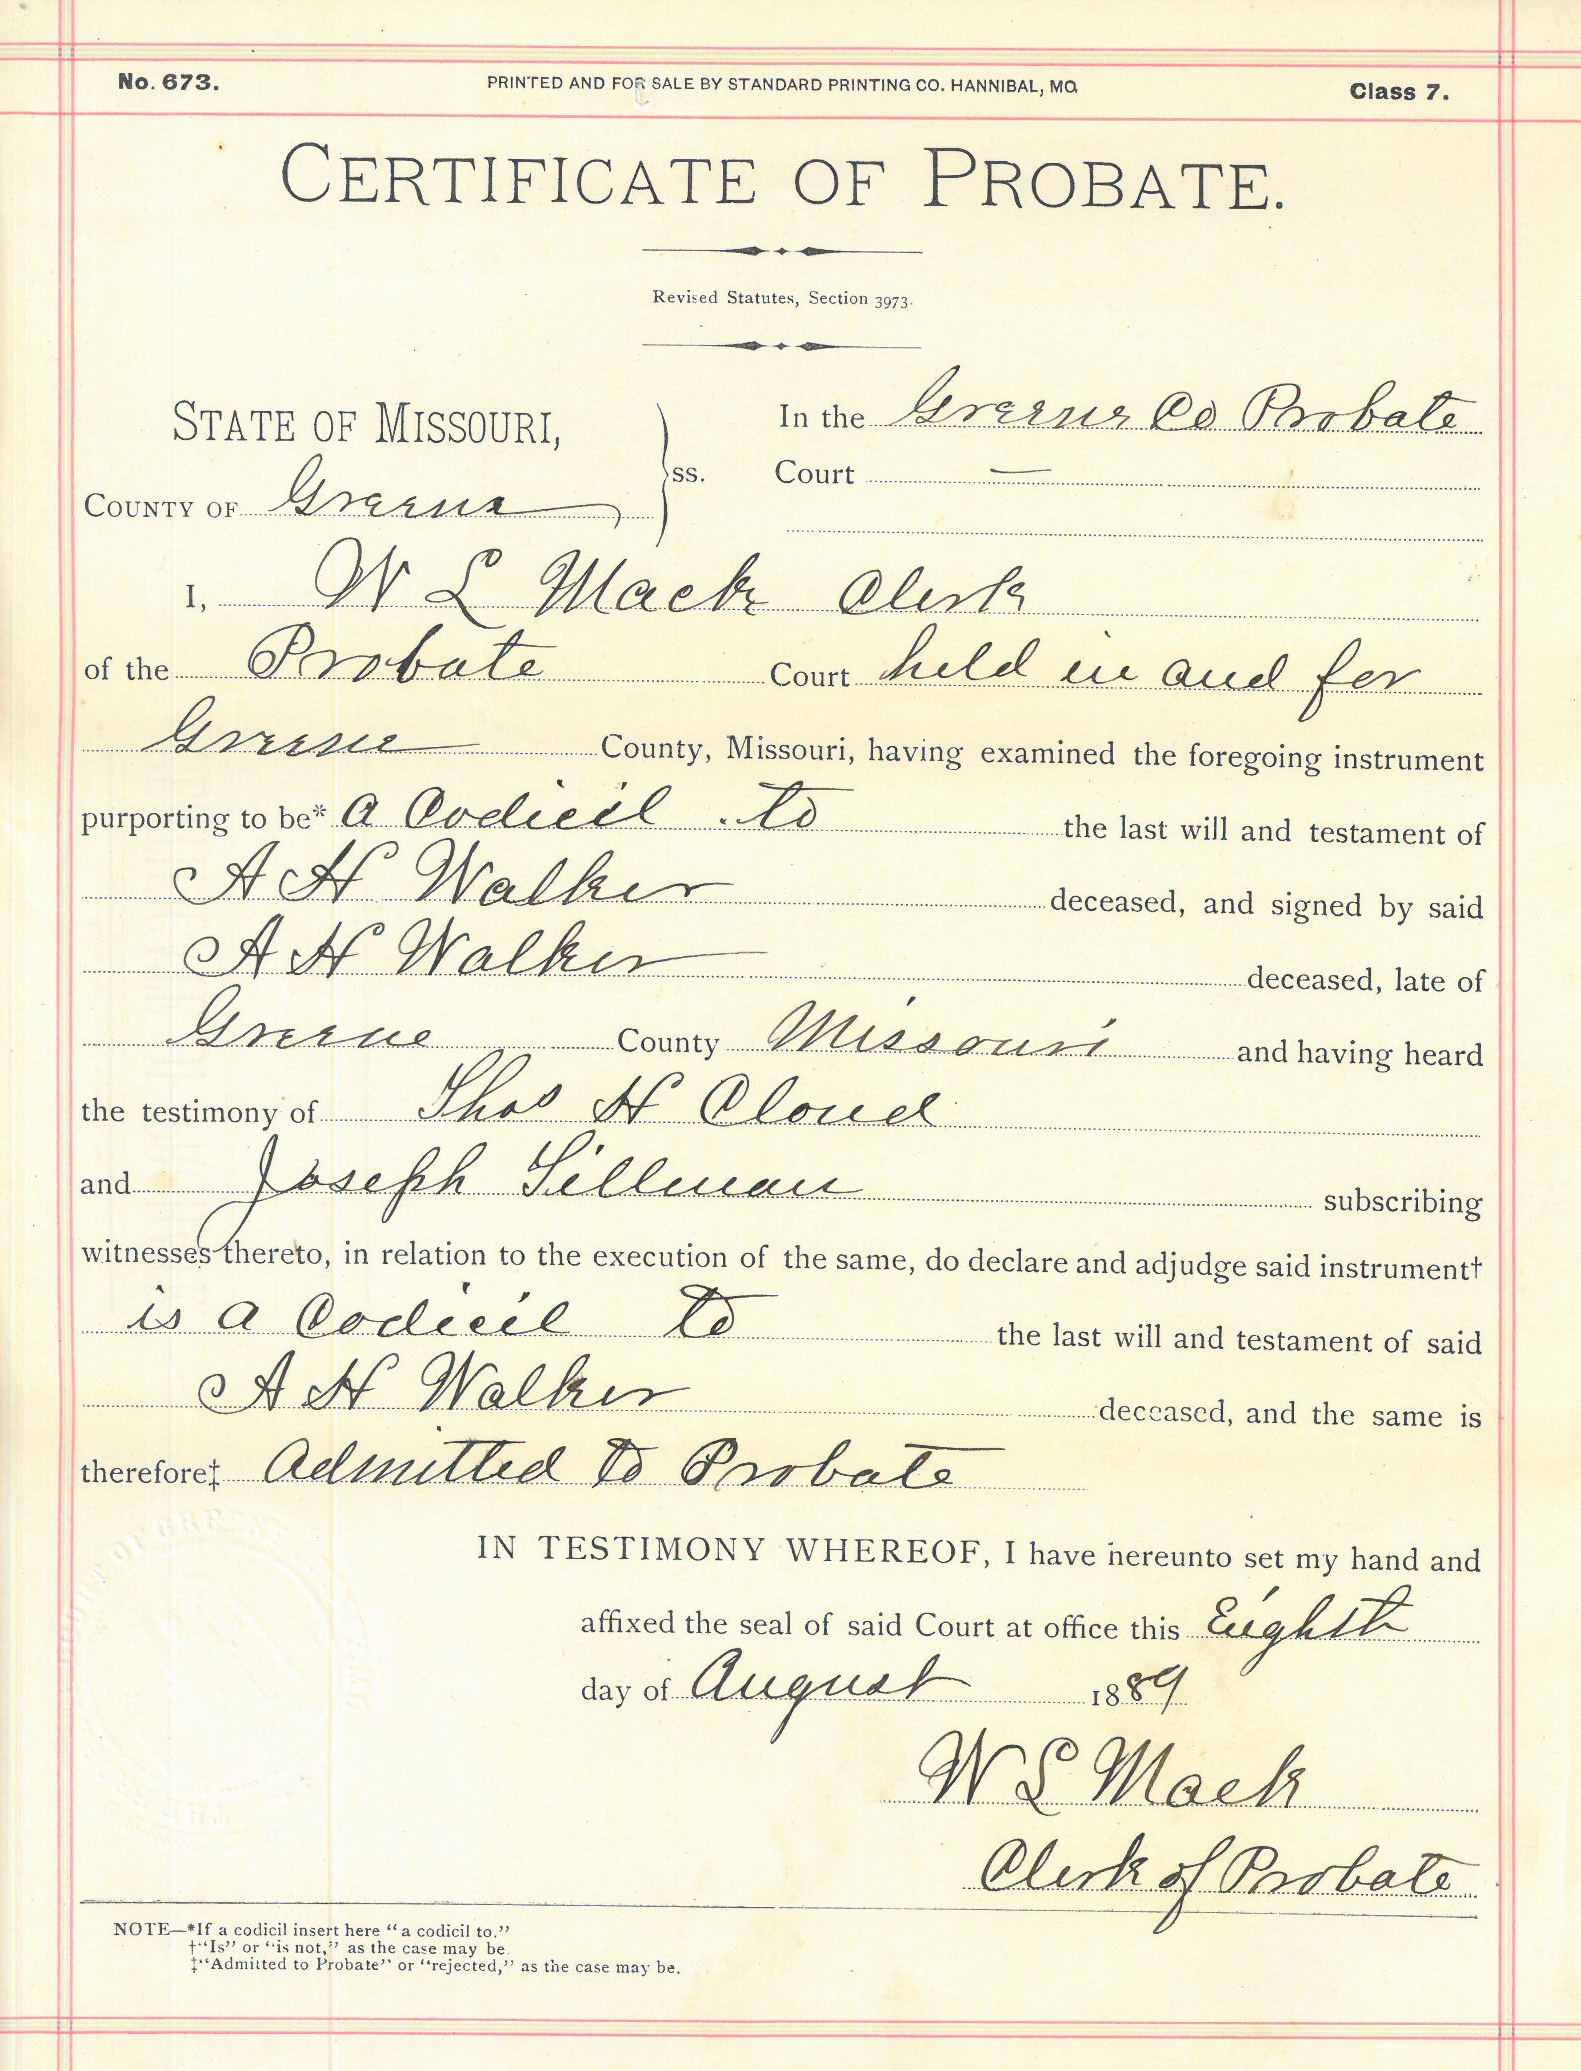 No. 673. PRINTED AND FOR SALE BY STANDARD PRINTING CO. HANNIBAL, MO. Class 7.
CERTIFICATE OF PROBATE.
Revised Statutes, Section 3973.
STATE OF MISSOURI,
COUNTY OF Greene
ss.
In the Greene Co Probate
Court —
I, W L Mack Clerk
of the Probate Court held in and for
Greene County, Missouri, having examined the foregoing instrument
purporting to be* a Codicil to the last will and testament of
A H Walker deceased, and signed by said
A H Walker deceased, late of
Greene County Missouri and having heard
the testimony of Thos H Cloud
and Joseph Sillman subscribing
witnesses thereto, in relation to the execution of the same, do declare and adjudge said instrument†
is a Codicil to the last will and testament of said
A H Walker deceased, and the same is
therefore‡ Admitted to Probate
IN TESTIMONY WHEREOF, I have hereunto set my hand and
affixed the seal of said Court at office this Eighth
day of August 1889
W L Mack
Clerk of Probate
NOTE—*If a codicil insert here "a codicil to."
†"Is" or "is not," as the case may be.
‡"Admitted to Probate" or "rejected," as the case may be.